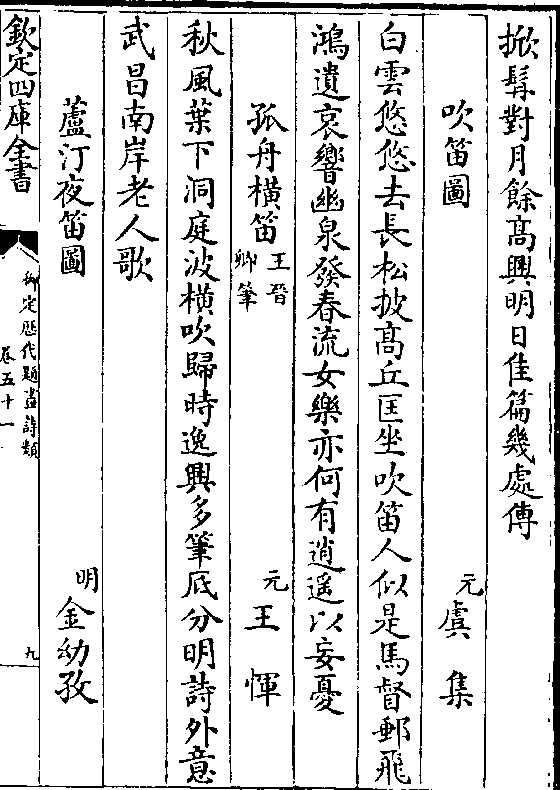 掀髯對月餘髙興明日佳篇幾處傳
吹笛圖 元 虞集
白雲悠悠去長松披髙丘匡坐吹笛人似是馬督郵飛
鴻遺哀響幽泉發春流女樂亦何有逍遥以妄憂
孤舟横笛 王晉卿筆 元 王惲
秋風葉下洞庭波横吹歸時逸興多筆底分明詩外意
武昌南岸老人歌
蘆汀夜笛圖 明 金幼孜
欽定四庫全書
御定歷代題畫詩類
卷五十一
九